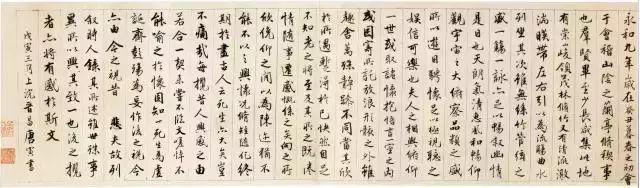 永和九年歲在癸丑暮春之初會
于會稽山陰之蘭亭脩稧事
也群賢畢至少長咸集此地
有崇山峻領茂林脩竹又有清流激
湍暎帶左右引以為流觴曲水
列坐其次雖無絲竹管絃之
盛一觴一詠亦足以暢敘幽情
是日也天朗氣清惠風和暢仰
觀宇宙之大俯察品類之盛
所以遊目騁懷足以極視聽之
娛信可樂也夫人之相與俯仰
一世或取諸懷抱悟言一室之內
或因寄所託放浪形骸之外雖
趣舍萬殊靜躁不同當其欣
於所遇蹔得於己快然自足
不知老之將至及其所之既惓
情隨事遷感慨係之矣向之所
欣俛仰之間以為陳迹猶不
能不以之興懷況脩短隨化終
期於盡古人云死生亦大矣豈
不痛哉每攬昔人興感之由
若合一契未嘗不臨文嗟悼不
能喻之於懷固知一死生為虛
誕齊彭殤為妄作後之視今
亦由今之視昔 悲夫故列
敘時人錄其所述雖世殊事
異所以興懷其致一也後之攬
者亦將有感於斯文
戊寅三月上浣晉昌唐寅書